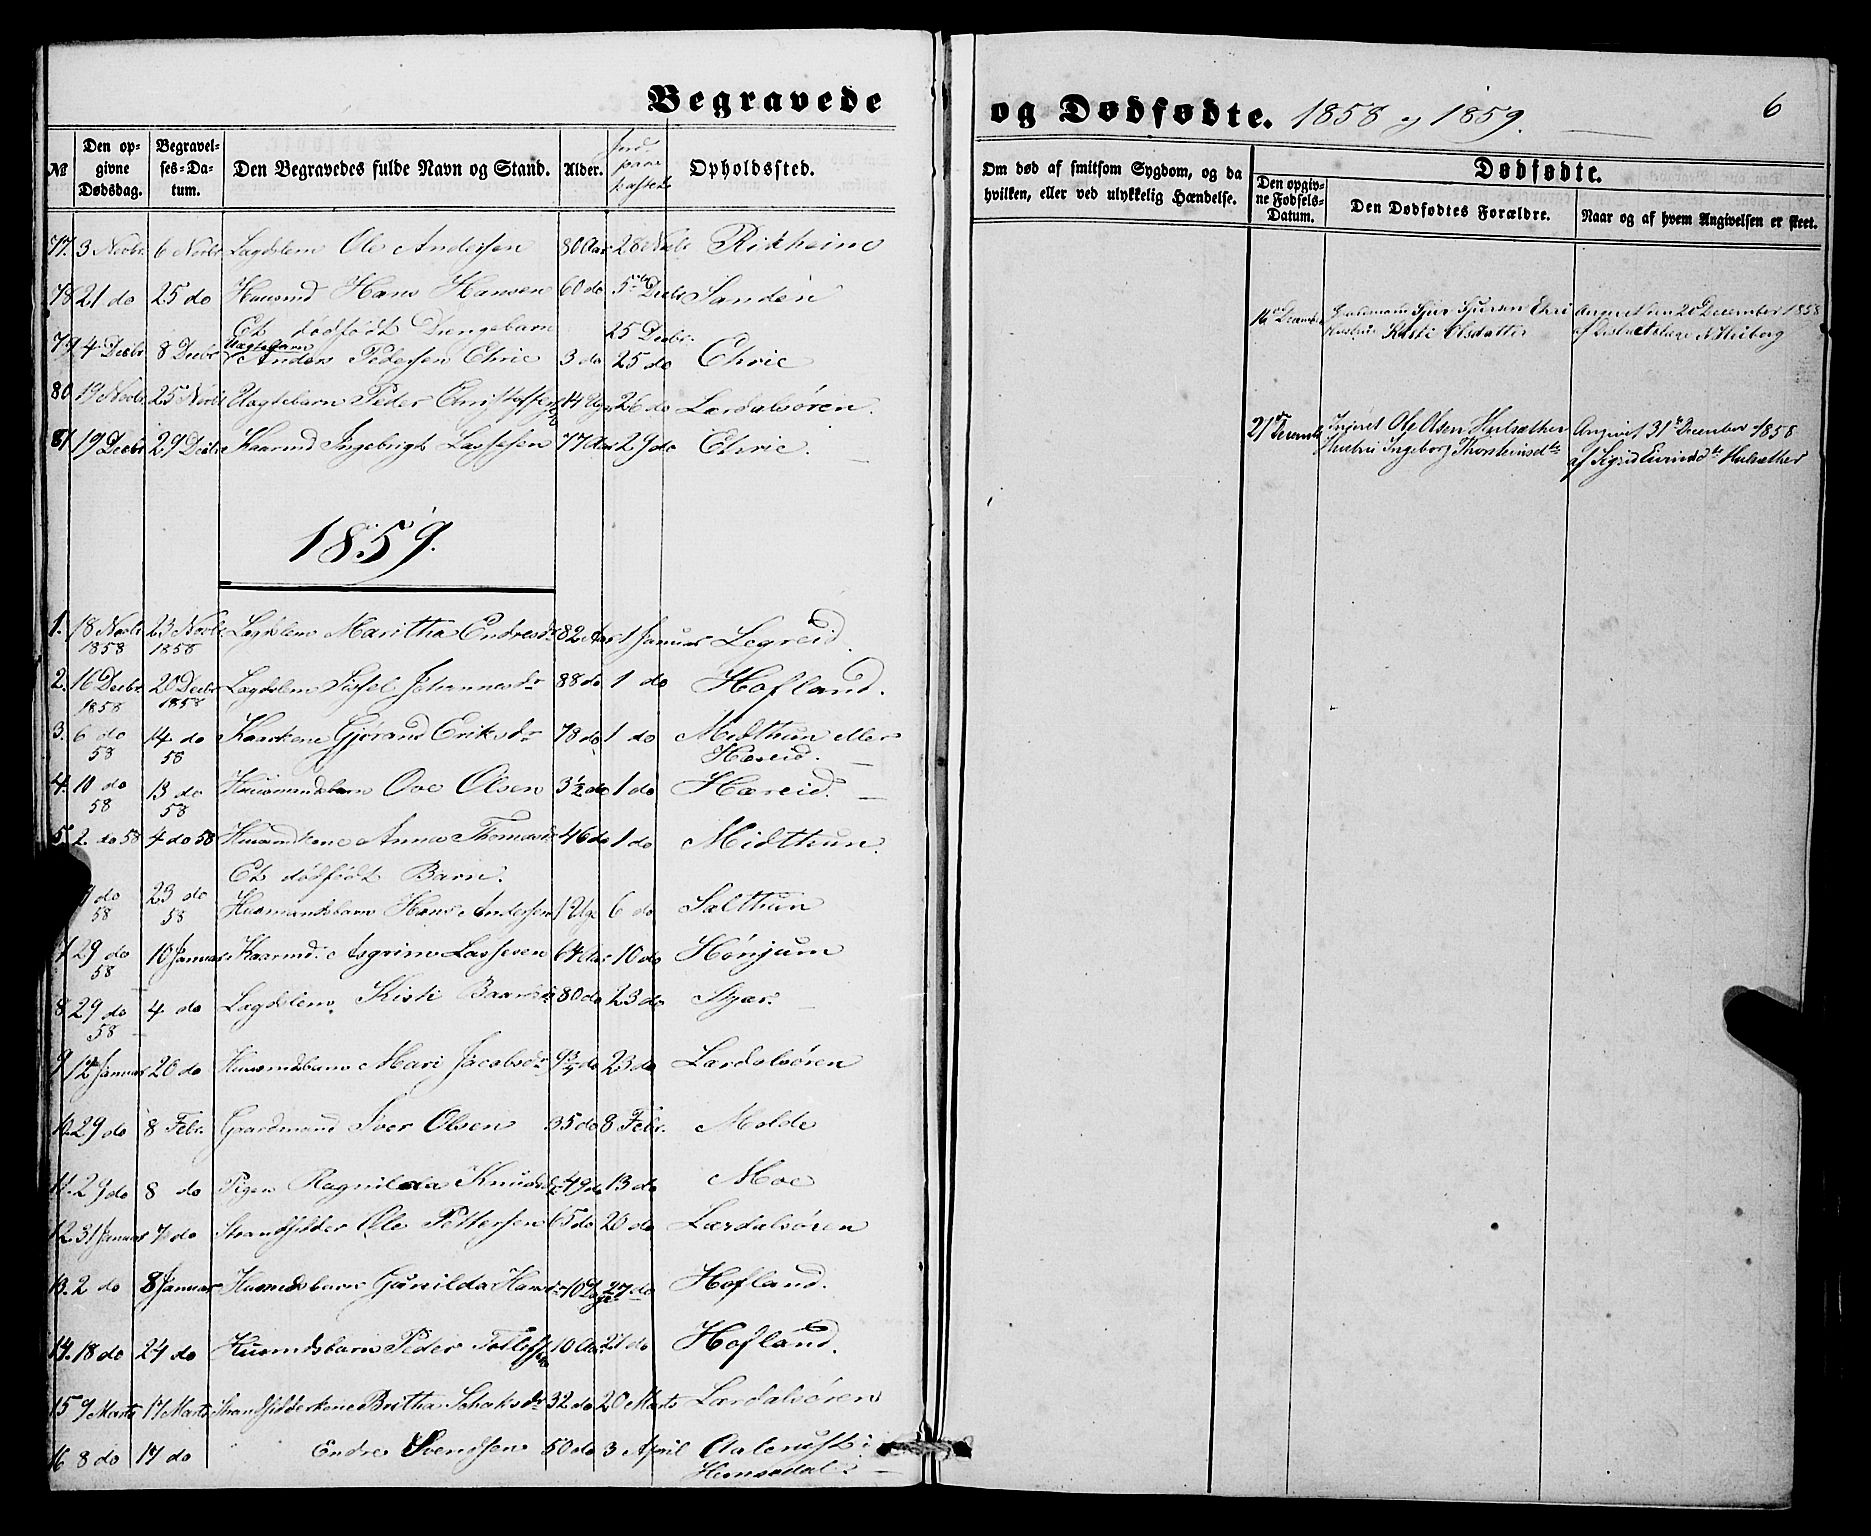 Begravede
og Dødfødte. 1858 og 1859.
6
№ Den opgivne Dødsdag. Begravelses-Datum. Den Begravedes fulde Navn og Stand. Alder. Jordpaakastet Opholdssted.
Om død af smitsom Sygdom, og da hvilken, eller ved ulykkelig Hændelse.
Dødfødte.
Den opgivne Fødsels-Datum. Den Dødfødtes Forældre. Naar og af hvem Angivelsen er skeet.
77. 3 Novbr. 6 Novbr Lægdslem Ole Andersen 80 Aar 28 Rikheim
78 21 do 25 do Huusmd Hans Hansen 60 do 5 Decbr Sanden
Et dødfødt Drengebarn 25 Decbr.
79 4 Decbr 8 Decbr Uægtebarn Anders Pedersen Ehrie 3 do 25 do Ehrie
80 19 Novbr 25 Novbr Uægtebarn Peder Christoffersen 14 Uger 26 do Lærdalsøren.
81 19 Decbr 29 Decbr Kaarmd Ingebrigt Lassesen 77 Aar 29 do Ehrie.
16 December Gaardmand Sjur Sjursen Ehri
Hustru Kristi Olsdatter
Angivet den 20 December 1858
21 December Inderst Ole Olsen
Hustru Ingeborg Thorsteinsdtr
Angivet 31te December 1858
af Sigrid Eivindsdtr
1859.
1. 18 Novbr 1858 23 Novbr 1858 Lægdslem Maritha Endresdr 82 Aar 1 Januar Legreid.
2. 16 Decbr 1858 20 Decbr 1858 Lægdslem Sissel Johannesdr 88 do 1 do Hofland.
3. 6 do 58 14 do 58 Kaarkone Gjørand Eriksdr 78 do 1 do Midthun eller Hæreid.
4. 10 do 58 13 do 58 Huusmandsbarn Ove Olsen 3½ do 1 do Hæreid.
5. 2 do 58 4 do 58 Huusmdkone Anna Thomasdr 46 do 1 do Midthun.
Et dødfødt Barn.
do 58 23 do 58 Husmandsbarn Hans Andersen 1 Uge 6 do Salthun
7. 29 do 58 10 Januar Kaarmd. Asgrim Lassesen 64 Aar 10 do Hønjum
8 29 do 58 4 do Lægdslem Kisti 80 do 23 do
9 12 Januar 20 do Huusmdsbarn Mari Jacobsdr do 23 do Lærdalsøren
10. 29 do 8 Febr. Gaardmand Iver Olsen 35 do 8 Febr. Molde
11. 29 do 8 do Pigen Ragnilda Knudsdr 49 do 13 do Moe
12. 31 Januar 7 do Strandsidder Ole Pettersen 65 do 20 do Lærdalsøren
13. 2 do 8 Januar Husmdsbarn Gunilda Hansdr 10 Dage 27 do Hofland.
14. 18 do 24 do Huusmdsbarn Peder Tollefsen 10 Aar 27 do Hofland.
15 9 Marts 17 Marts Strandsidderkone Britha 32 do 20 Marts Lærdalsøren
16 8 do 17 do Endre Svendsen 50 do 3 April Aalerust i Hemsedal